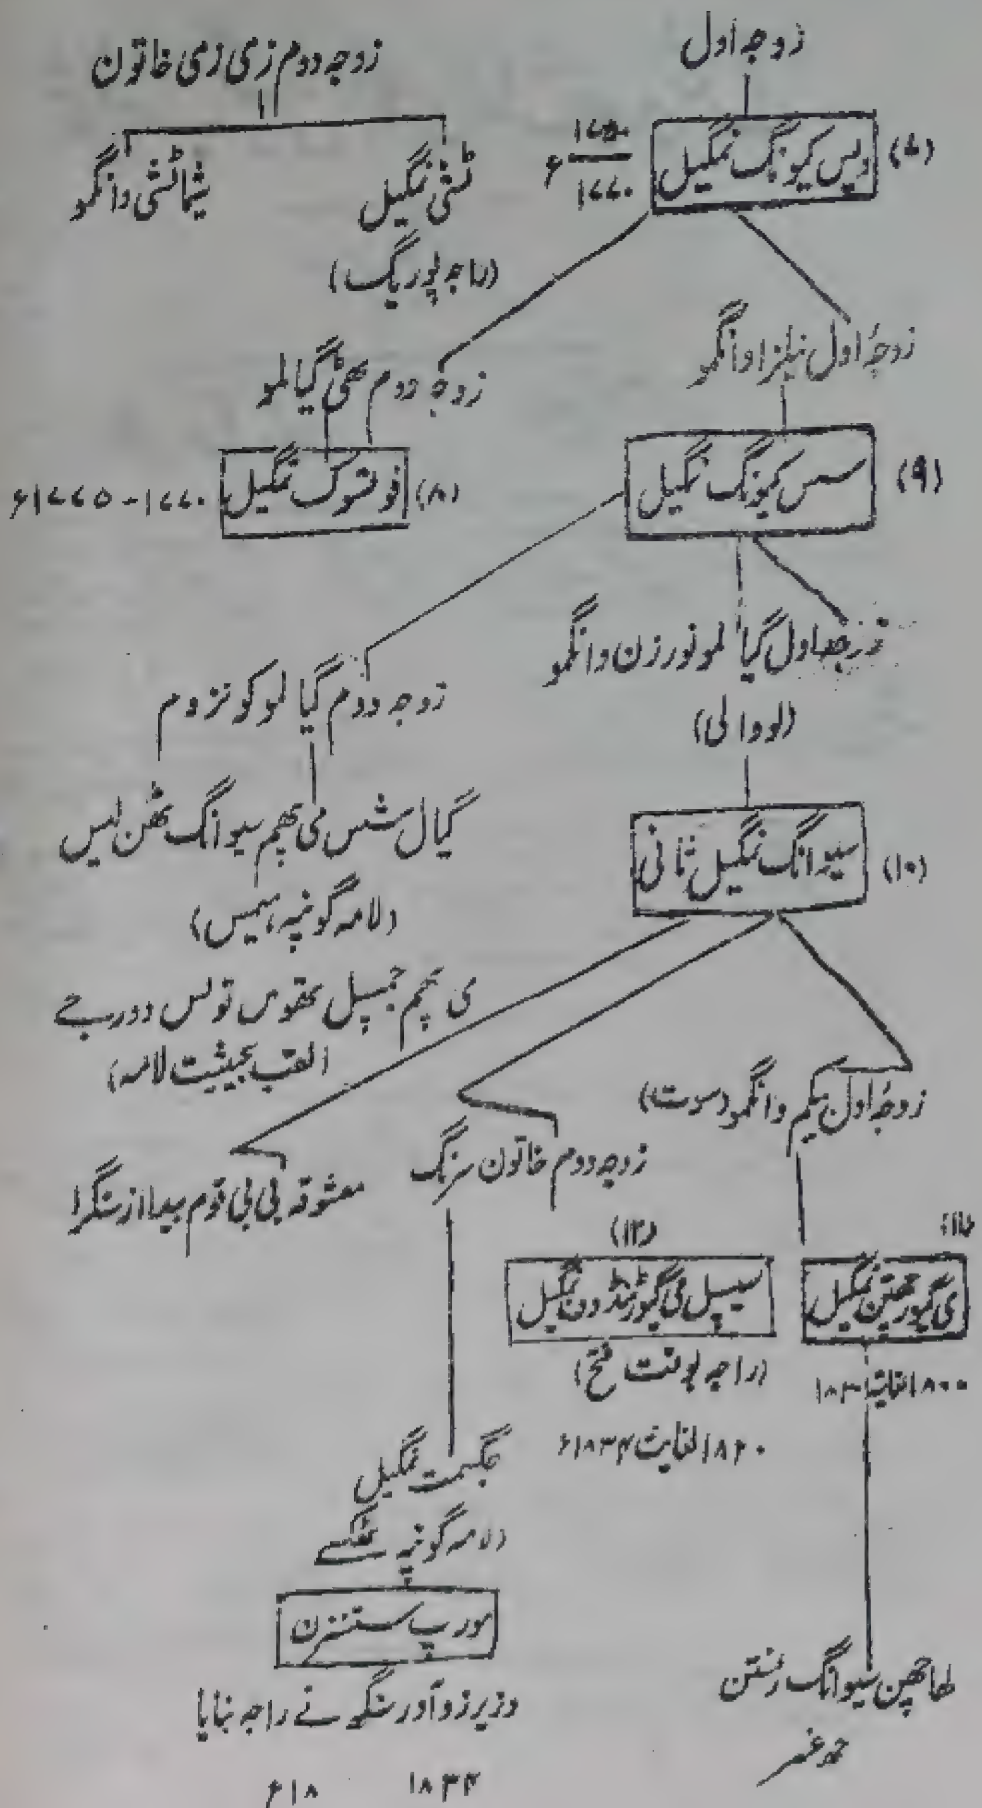 زوجہ اول
زوجہ دوم زی زی خاتون
(۷) دیس کیونگ نمگیل ۱۷۵۰ / ۱۷۷۰ ء
ٹشی نمگیل
(راجہ پوریگ)
شیاٹشی وانگمو
زوجۂ اول نیلزا وانگمو
زوجہ دوم بھٹی گیالمو
(۹) سس کیونگ نمگیل
(۸) فونشوک نمگیل ۱۷۷۰ - ۱۷۷۵ء
زوجہ اول گیا لمو نورزن وانگمو
(لووالی)
زوجہ دوم گیا لمو کونزوم
(۱۰) سیوانگ نمگیل ثانی
گیال سٹس می پھم سیوانگ ٹھن لیس
(لامہ گونپہ ہیمیس)
می پھم جمپل تولس دورجے
(لقب بحیثیت لامہ)
زوجۂ اول بیکم وانگمو (سوت)
زوجہ دوم خاتون سرنگ
معشوقہ بی بی قوم بیدا از سنگرا
(۱۱)
(۱۲)
نمگیل
۱۸۰۰ لغایت ۱۸۳۰
سیپل می گیور ٹنڈون نمگیل
(راجہ بوقت فتح)
۱۸۲۰ لغایت ۱۸۳۴ء
جگمت نمگیل
(لامہ گونپہ
مورپ ستنزن
وزیر زوآور سنگھ نے راجہ بنایا
۱۸۳۴ ۱۸ء
لھاچھن سیوانگ رنتن